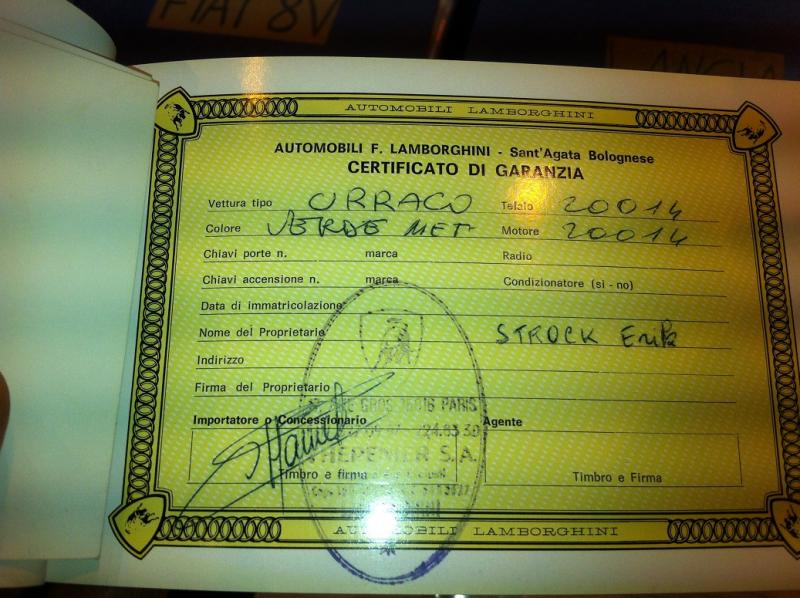 FIAT 8V
AUTOMOBILI LAMBORGHINI
AUTOMOBILI F. LAMBORGHINI - Sant'Agata Bolognese
CERTIFICATO DI GARANZIA
Vettura tipo URRACO Telaio 20014
Colore VERDE MET Motore 20014
Chiavi porte n. marca Radio
Chiavi accensione n. marca Condizionatore (si - no)
Data di immatricolazione
Nome del Proprietario STROCK Erik
Indirizzo
Firma del Proprietario
GROS 75016 PARIS
Importatore o Concessionario Agente
THEPENIER S.A.
Timbro e firma Timbro e Firma
AUTOMOBILI LAMBORGHINI